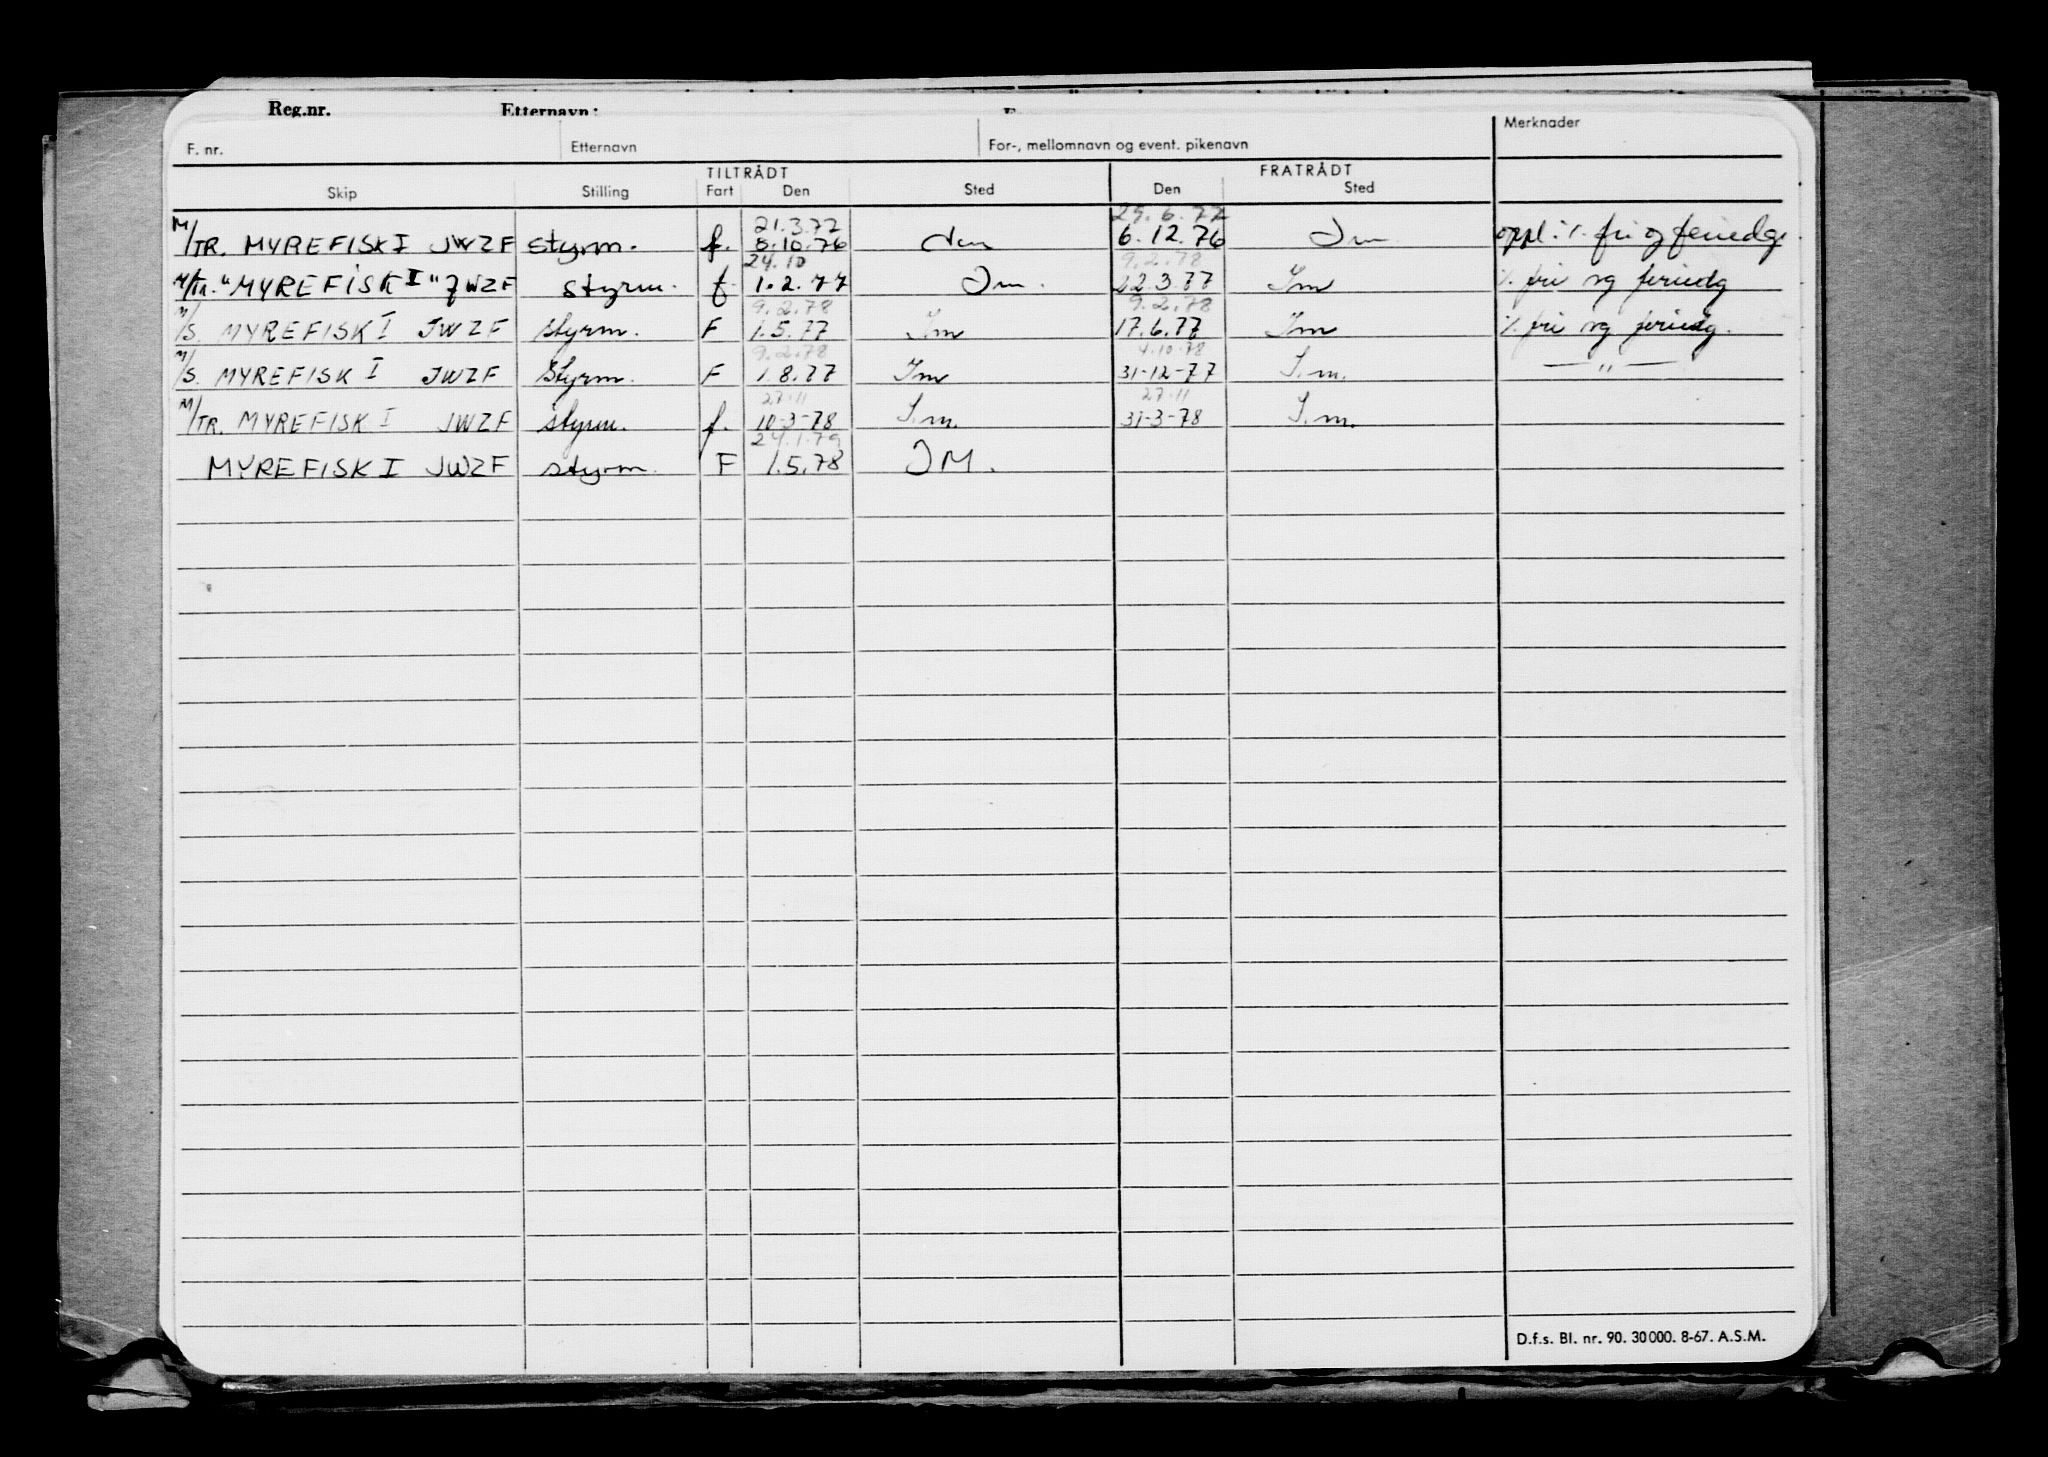 Reg.nr. Etternavn:
Merknader
F. nr. Etternavn For-, mellomnavn og event. pikenavn
TILTRÅDT FRATRÅDT
Skip Stilling Fart Den Sted Den Sted
21.3.77 29.6.77
M/TR. MYREFISK I JWZF styrm. f. 8.10.76 6.12.76 Im oppl: % fri og feriedg.
24.10 9.2.78
M/Tr. "MYREFISK I" JWZF styrm. f. 1.2.77 Im. 22.3.77 Im % fri og feriedg
9.2.78 9.2.78
M/S. MYREFISK I JWZF styrm. F 1.5.77 Im 17.6.77 Im % fri og feriedg.
9.2.78 4.10.78
M/S. MYREFISK I JWZF Styrm. F 1.8.77 Im 31-12-77 I.m. — " —
27.11 27.11
M/TR. MYREFISK I JWZF styrm. f. 10-3-78 I.m. 31-3-78 I.m.
24.1.79
MYREFISK I JWZF styrm. F 1.5.78 IM.
D.f.s. Bl. nr. 90. 30000. 8-67. A.S.M.